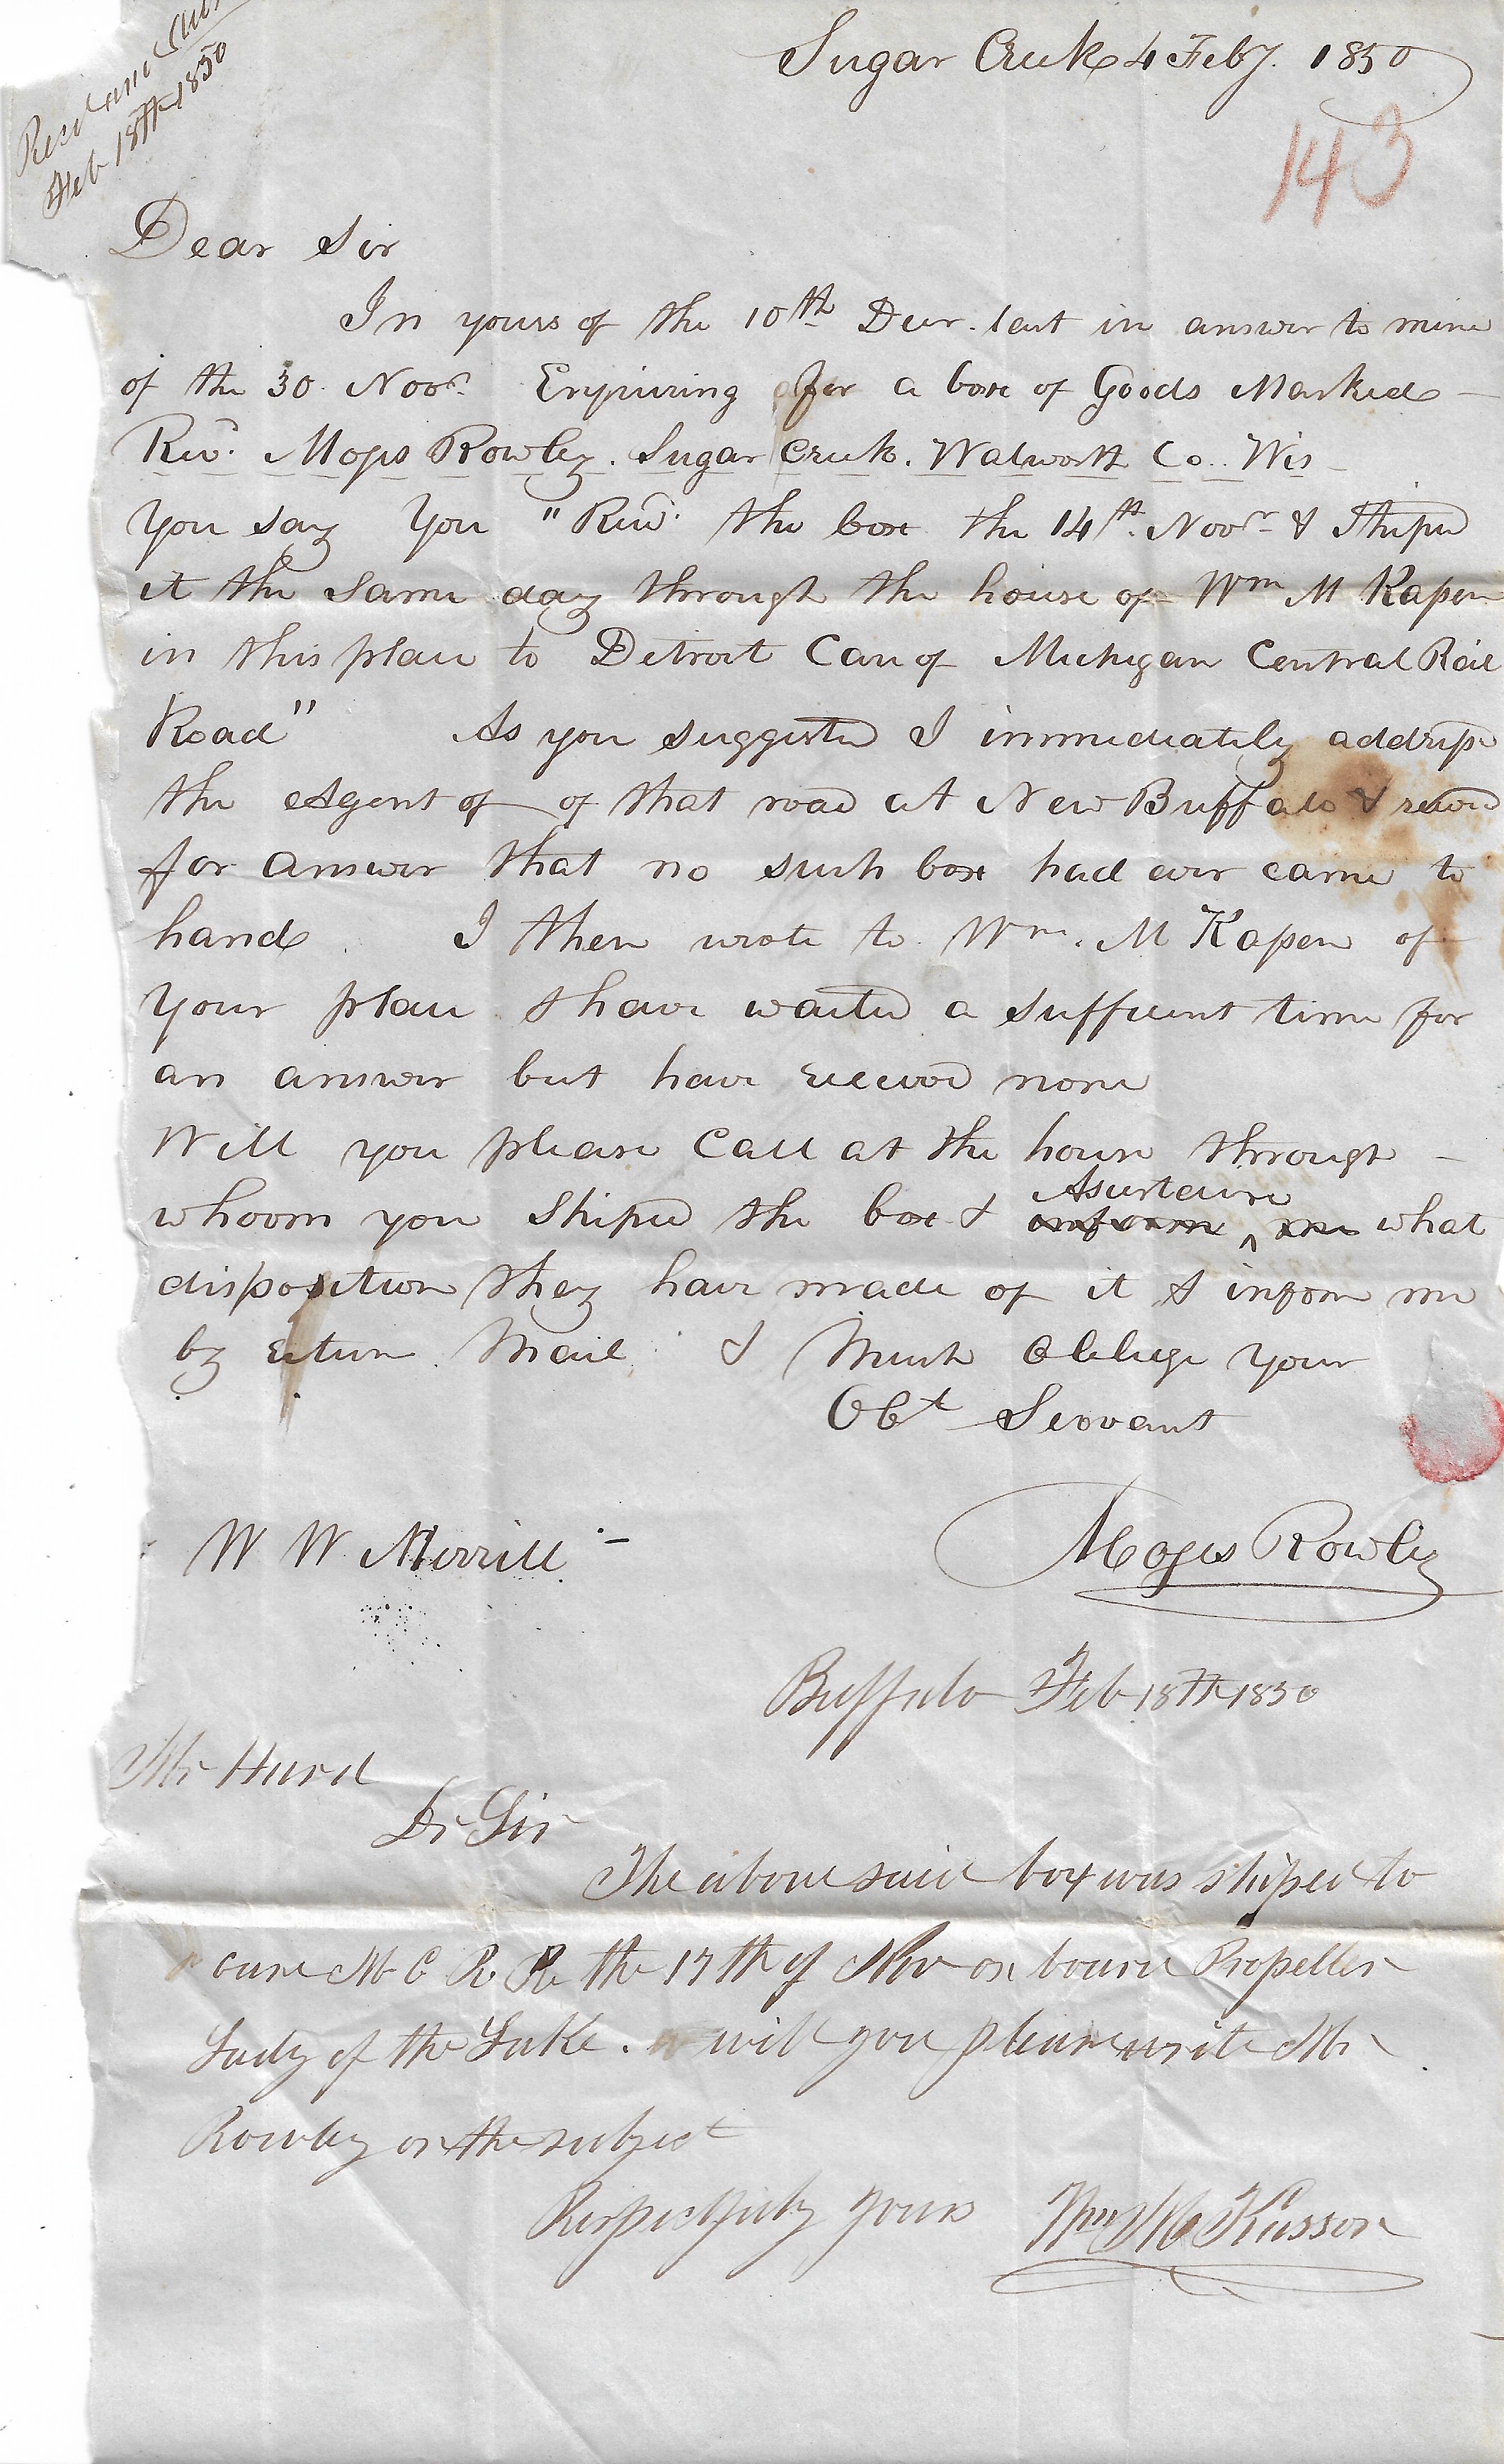 Recd and Ans
Feb 18th 1850
Sugar Creek 4 Feby. 1850
143
Dear Sir
In yours of the 10th Decr. last in answer to mine
of the 30 Novr. Enquiring for a box of Goods Marked
Rev. Moses Rowley. Sugar Creek. Walworth Co. Wis
you say you "Recd. the box the 14th. Novr. & Shiped
it the same day through the house of Wm M Kasson
in this place to Detroit Care of Michigan Central Rail
Road" As you suggested I immediately addressd
the Agent of of that road at New Buffalo & recvd
for answer that no such box had ever came to
hand. I then wrote to Wm. M Kasson of
your place & have waited a sufficient time for
an answer but have received none
Will you please Call at the house through
whoom you Shiped the box & inform me ^ Asurtaine what
disposition they have made of it & inform me
by return Mail & Much Obblige your
Obt Servant
W W Merrill
Moses Rowley
Buffalo Feb 18th 1850
Mr Hurd
Dr Sir
The above said box was shiped to
care M C R R the 17th of Nov on board Propeller
Lady of the Lake. will you please write Mr
Rowley on the subject
Respectfully yours Wm M Kasson